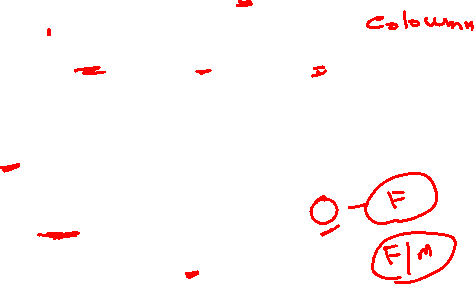 Coloumn
D
O - F
F|M